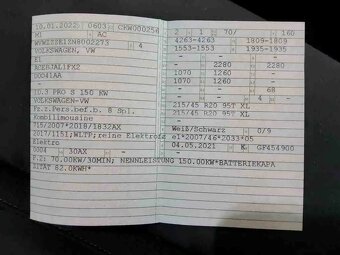 10.01.2022 0603 CHW000256
M1 AC
WVWZZZE1ZN8002273 4
VOLKSWAGEN, VW
E1
ACEBJAL1FX2
00041AA
ID.3 PRO S 150 KW
VOLKSWAGEN-VW
Fz.z.Pers.bef.b. 8 Spl.
Kombilimousine
715/2007*2018/1832AX
2017/1151;WLTP;reine Elektrofz
Elektro
0004 30AX -
2 1 70/ - 160
4263-4263 - 1809-1809
1553-1553 - 1935-1935
- - 2280 - 2280
1070 1260 - -
1070 1260 - -
- - - 68
- - 4 -
215/45 R20 95T XL
215/45 R20 95T XL
-
Weiß/Schwarz 0/9
e1*2007/46*2033*05
04.05.2021 K GF454900
F.2: 70.00KW/30MIN; NENNLEISTUNG 150.00KW*BATTERIEKAPA
ZITÄT 82.0KWH*